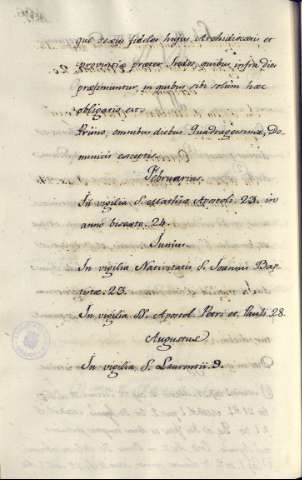 que sexus fideles hujus Archidiocesis et
provinciæ præter Indos, quibus infra dies
præfiniuntur, in quibus sibi solum hæc
obligatio est.
Primo, omnibus diebus Quadragesimæ, do-
minicis exceptis.
Februarius.
In vigilia S. Mathiæ Apostoli. 23. in
anno bisexto. 24.
Junius.
In vigilia Nativitatis S. Joannis Bap-
tistæ. 23.
In vigilia SS. Apostol. Petri et Pauli. 28.
Augustus
In vigilia S. Laurentii. 9.